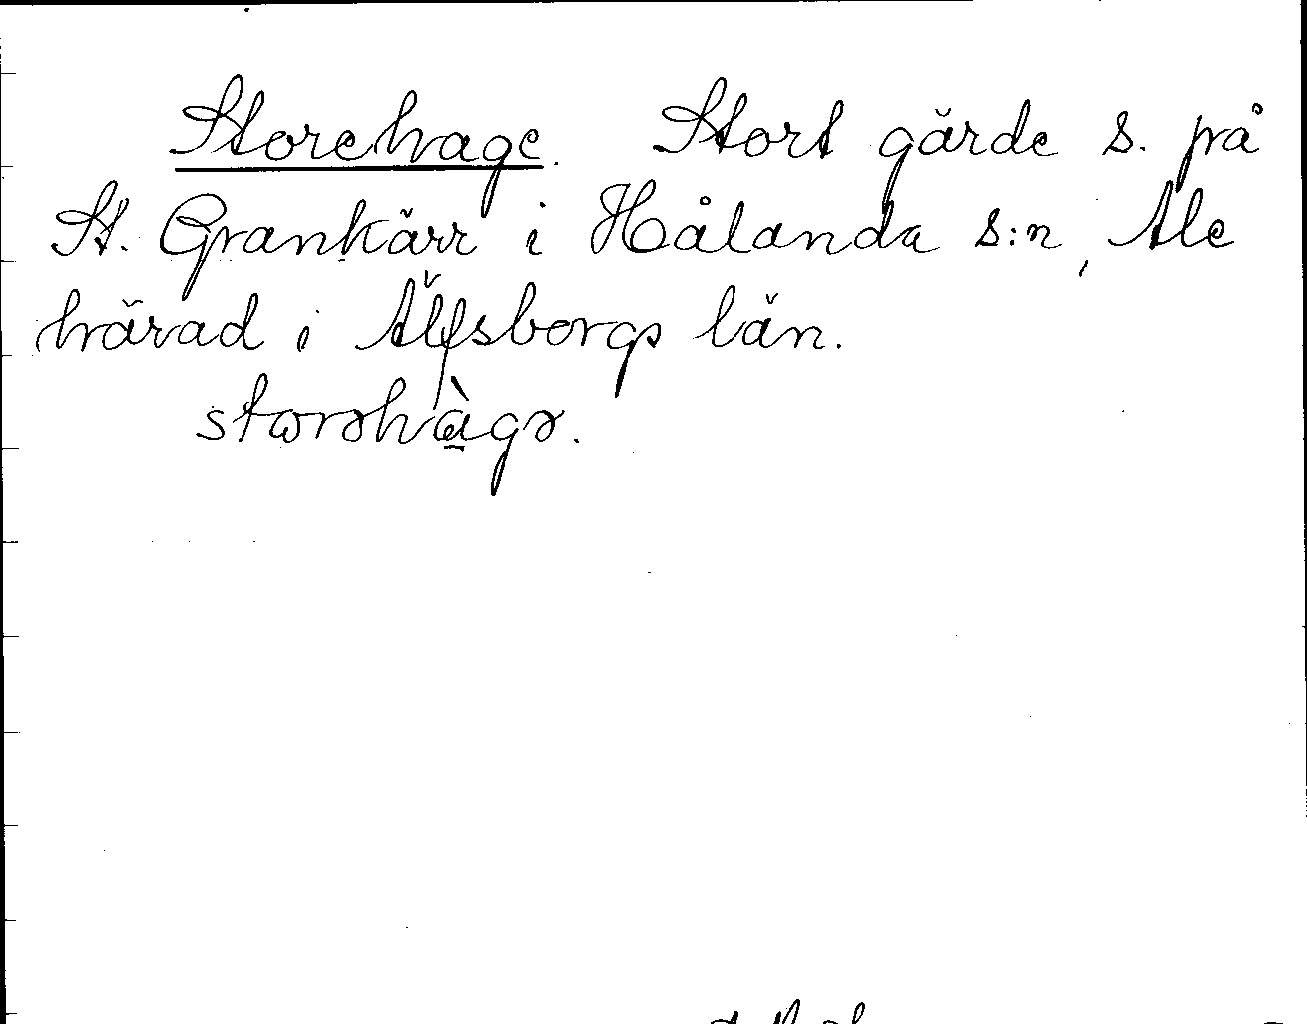 Storehage. Stort gärde s. på
St. Grankärr i Hålanda s:n, Ale
härad i Älfsborgs län.